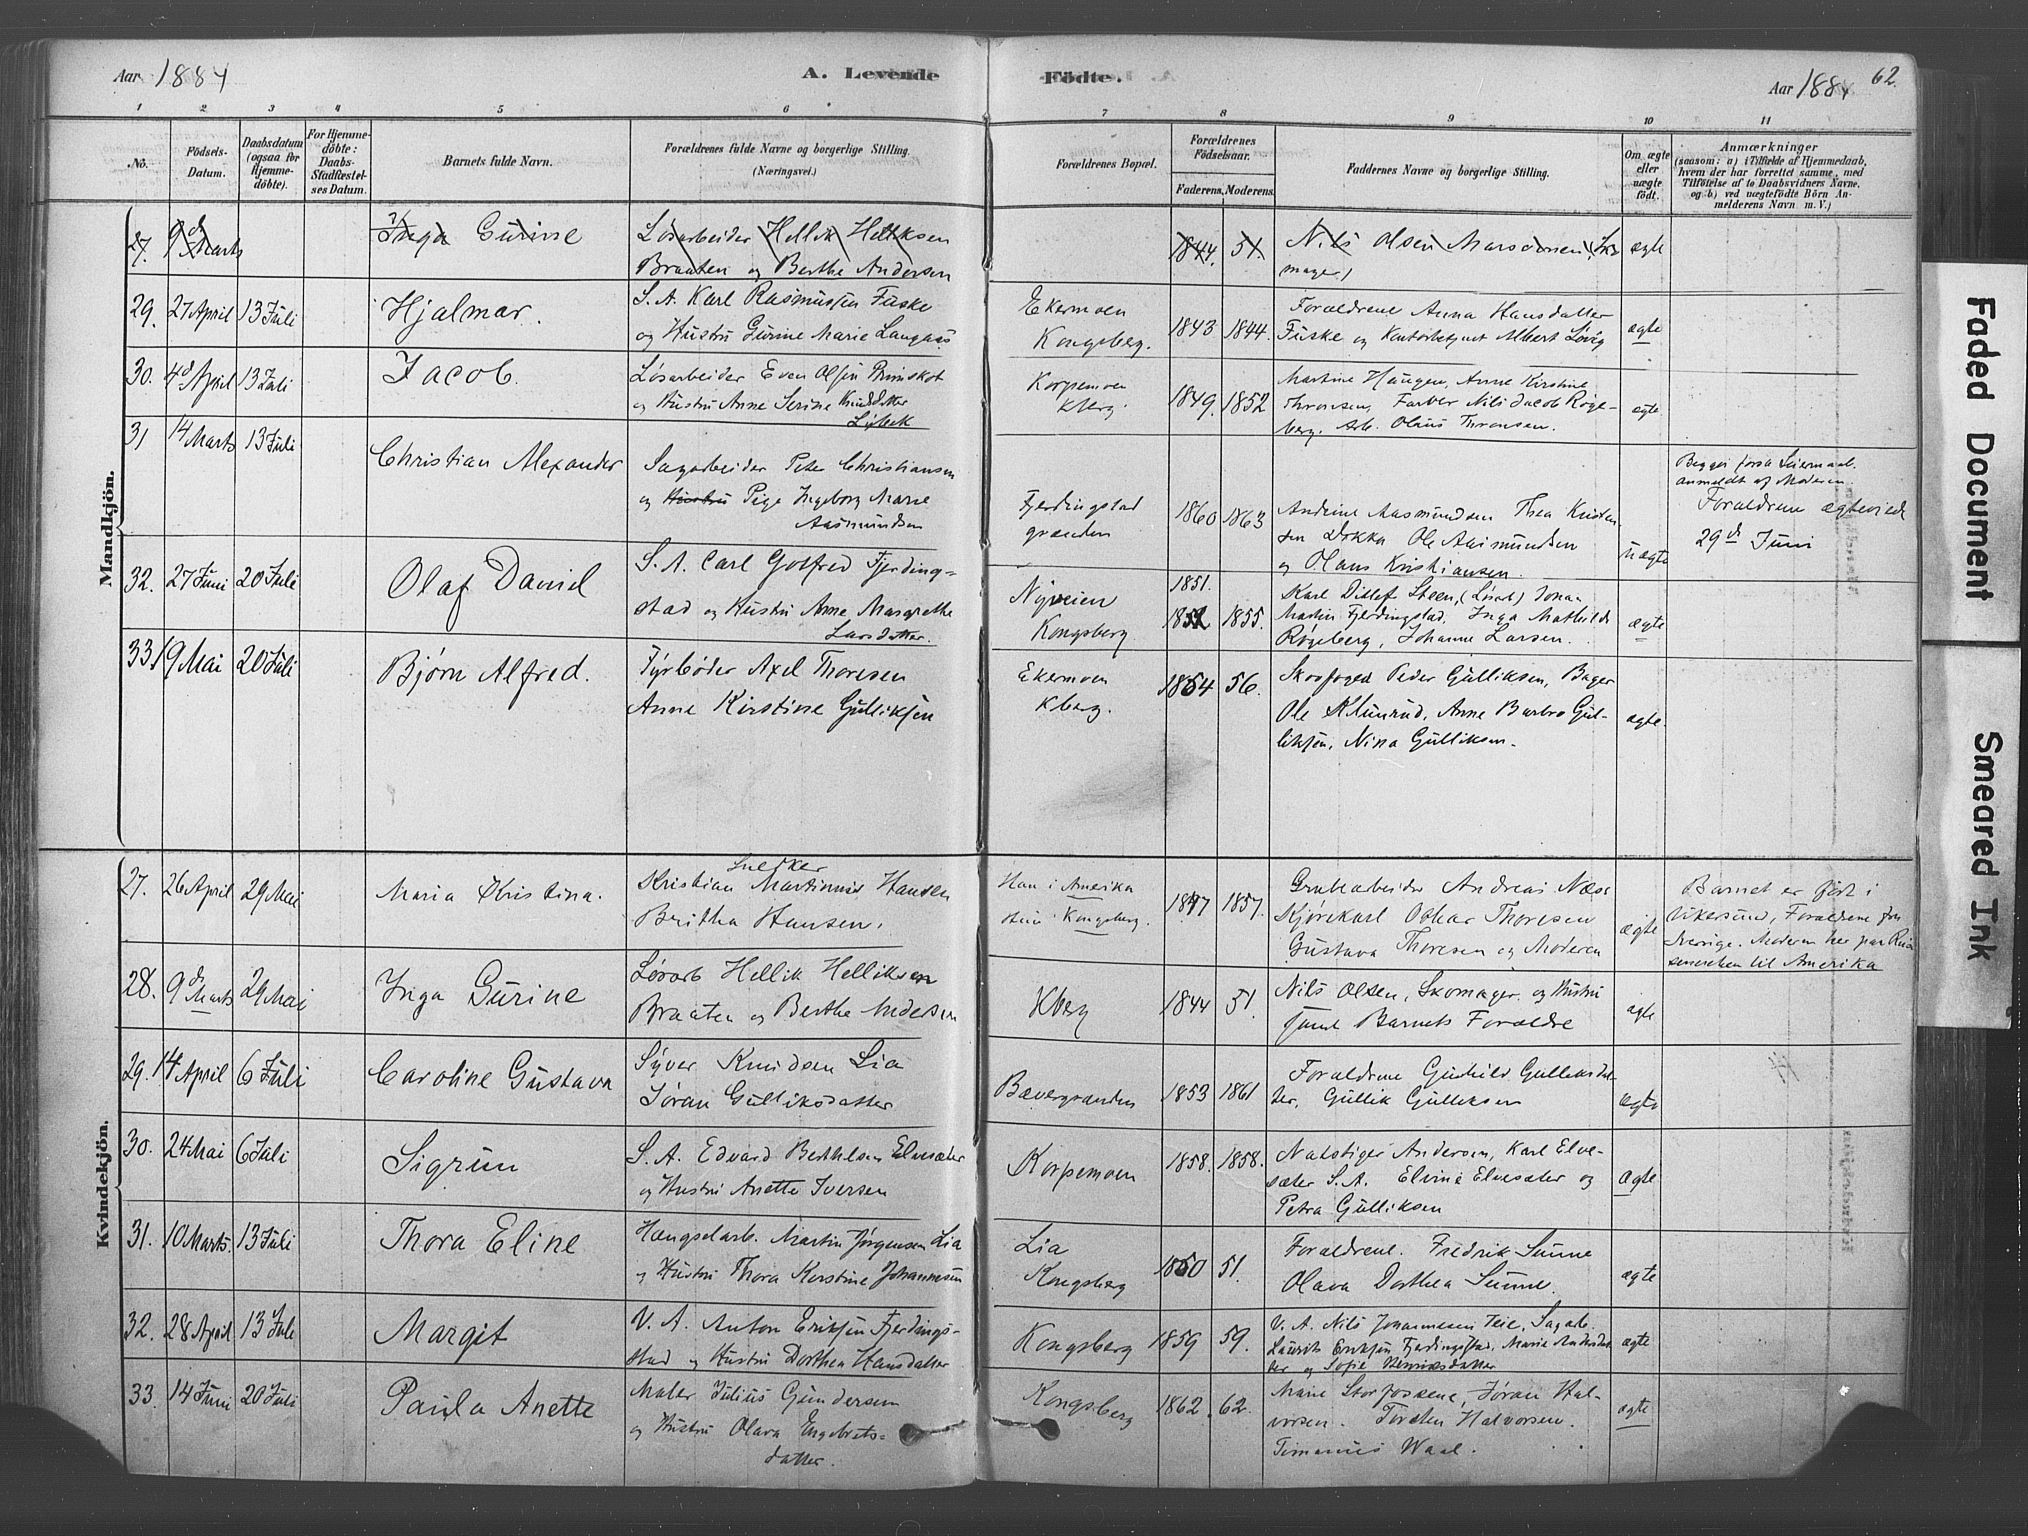 Aar 1884
A. Levende
Födte.
Aar 1884
62.
1 2 3 4 5 6 7 8 9 10 11
No.
Födsels-
Datum.
Daabsdatum
(ogsaa for
Hjemme-
döbte).
For Hjemme-
döbte:
Daabs-
Stadfæstel-
ses Datum.
Barnets fulde Navn.
Forældrenes fulde Navne og borgerlige Stilling.
(Næringsvei.)
Forældrenes Bopæl.
Forældrenes
Födselsaar.
Faderens. Moderens.
Faddernes Navne og borgerlige Stilling.
Om ægte
eller
uægte
födt.
Anmærkninger
(saasom: a) i Tilfælde af Hjemmedaab,
hvem der har forrettet samme, med
Tilföielse af to Daabsvidners Navne,
og b) ved uægtefödte Börn An-
melderens Navn m. V.)
Mandkjön.
27. 9d Marts
Inga Gurine
Løsarbeider Hellik Helliksen
Braaten og Berthe Andersen
1844. 51.
Nils Olsen
mager)
ægte
29. 27 April 13 Juli
Hjalmar.
S. A. Karl Rasmussen Fuske
og Hustru Gurine Marie Langaas
Ekermoen
Kongsberg.
1843 1844.
Forældrene Anna Hansdatter
Fuske og Albert Løvig
ægte
30. 4d April 13 Juli
Jacob.
Løsarbeider Even Olsen
og Hustru Anne Serine Knudsdatter
Korpemoen
Kberg.
1849. 1852
Martine Haugen, Anne Kirstine
Thronsen, Farver Nils Jacob Røge-
berg. Arb. Olaus Thronsen.
ægte
31 14 Marts 13 Juli
Christian Alexander
Sagarbeider Peter Christiansen
og Hustru Pige Ingeborg Marie
Aasmundsen
Fjerdingstad
grænden
1860 1863
Andrine Aasmundsen Thea Kristen-
sen Dokka Ole Aasmundsen
og Olaus Kristiansen.
Uægte
Begges første Leiermaal.
anmeldt af Moderen.
Forældrene ægteviede
29d Juni
32. 27 Juni 20 Juli
Olaf Daniel
S. A. Carl Gotfred Fjerding-
stad og Hustru Anne Margrethe
Larsdatter.
Nyveien
Kongsberg.
1851.
1852 1855.
Karl Ditlef Steen, (Løsarb) Johan
Martin Fjerdingstad, Inga Mathilde
Røgeberg, Johanne Larsen.
ægte
33. 19 Mai 20 Juli
Bjørn Alfred.
Fyrbøder Axel Thoresen
Anne Kirstine Gulliksen
Ekermoen
Kberg.
1854 56.
Skovfoged Peder Gulliksen, Bager
Ole Klunrud, Anne Barbro Gul-
liksen, Nina Gulliksen.
ægte.
Kvindekjön.
27. 26 April 29 Mai
Maria Kristina.
Snedker
Kristian Martinius Hansen
Britha Hansen.
Han i Amerika
Kongsberg.
1847 1857.
Grubearbeider Andreas Næss
Kjørekarl Oskar Thoresen
Gustava Thoresen og Moderen
ægte
Barnet er født i
Vikersund, Forældrene fra
Sverige. Moderen her paa Rei-
sen til Amerika
28. 9de Marts 29 Mai
Inga Gurine
Løsarb Hellik Helliksen
Braaten og Berthe Andersen
Kberg
1844 51.
Nils Olsen, Skomager og Hustru
samt Barnets Forældre
ægte
29. 14 April 6 Juli
Caroline Gustava
Syver Knudsen Lia
Jøran Gulliksdatter
Bævergrænden
1853 1861
Forældrene Gunhild Gulliksdat-
ter, Gullik Gulliksen
ægte
30. 24 Mai 6 Juli
Sigrun
S. A. Edvard Berthelsen Elvesæter
og Hustru Anette Iversen
Korpemoen
1858. 1858.
Natstiger Andersen, Karl Elve-
sæter S. A. Elvine Elvesæter og
Petra Gulliksen
ægte
31. 10 Marts. 13 Juli
Thora Eline
Hængselarb. Martin Jørgensen Lia
og Hustru Thora Kirstine Johannesen
Lia
Kongsberg
1850 51.
Forældrene. Fredrik Sunne
Olava Dorthea Sunne.
ægte
32. 28 April 13 Juli
Margit
V. A. Anton Eriksen Fjerding-
stad og Hustru Dorthea Hansdatter
Kongsberg
1859 59.
V. A. Nils Johannesen Teie, Sagarb.
Laurits Eriksen Fjerdingstad, Marie
ter og Sofie
ægte
33. 14 Juni 20 Juli
Paula Anette
Maler Julius Gundersen
og Hustru Olava Engebrets-
datter.
Kongsberg
1862. 62.
Marie Storfossene, Jøran Hal-
vorsen. Torsten Halvorsen.
Timanus Waal.
ægte
Faded Document
Smeared Ink